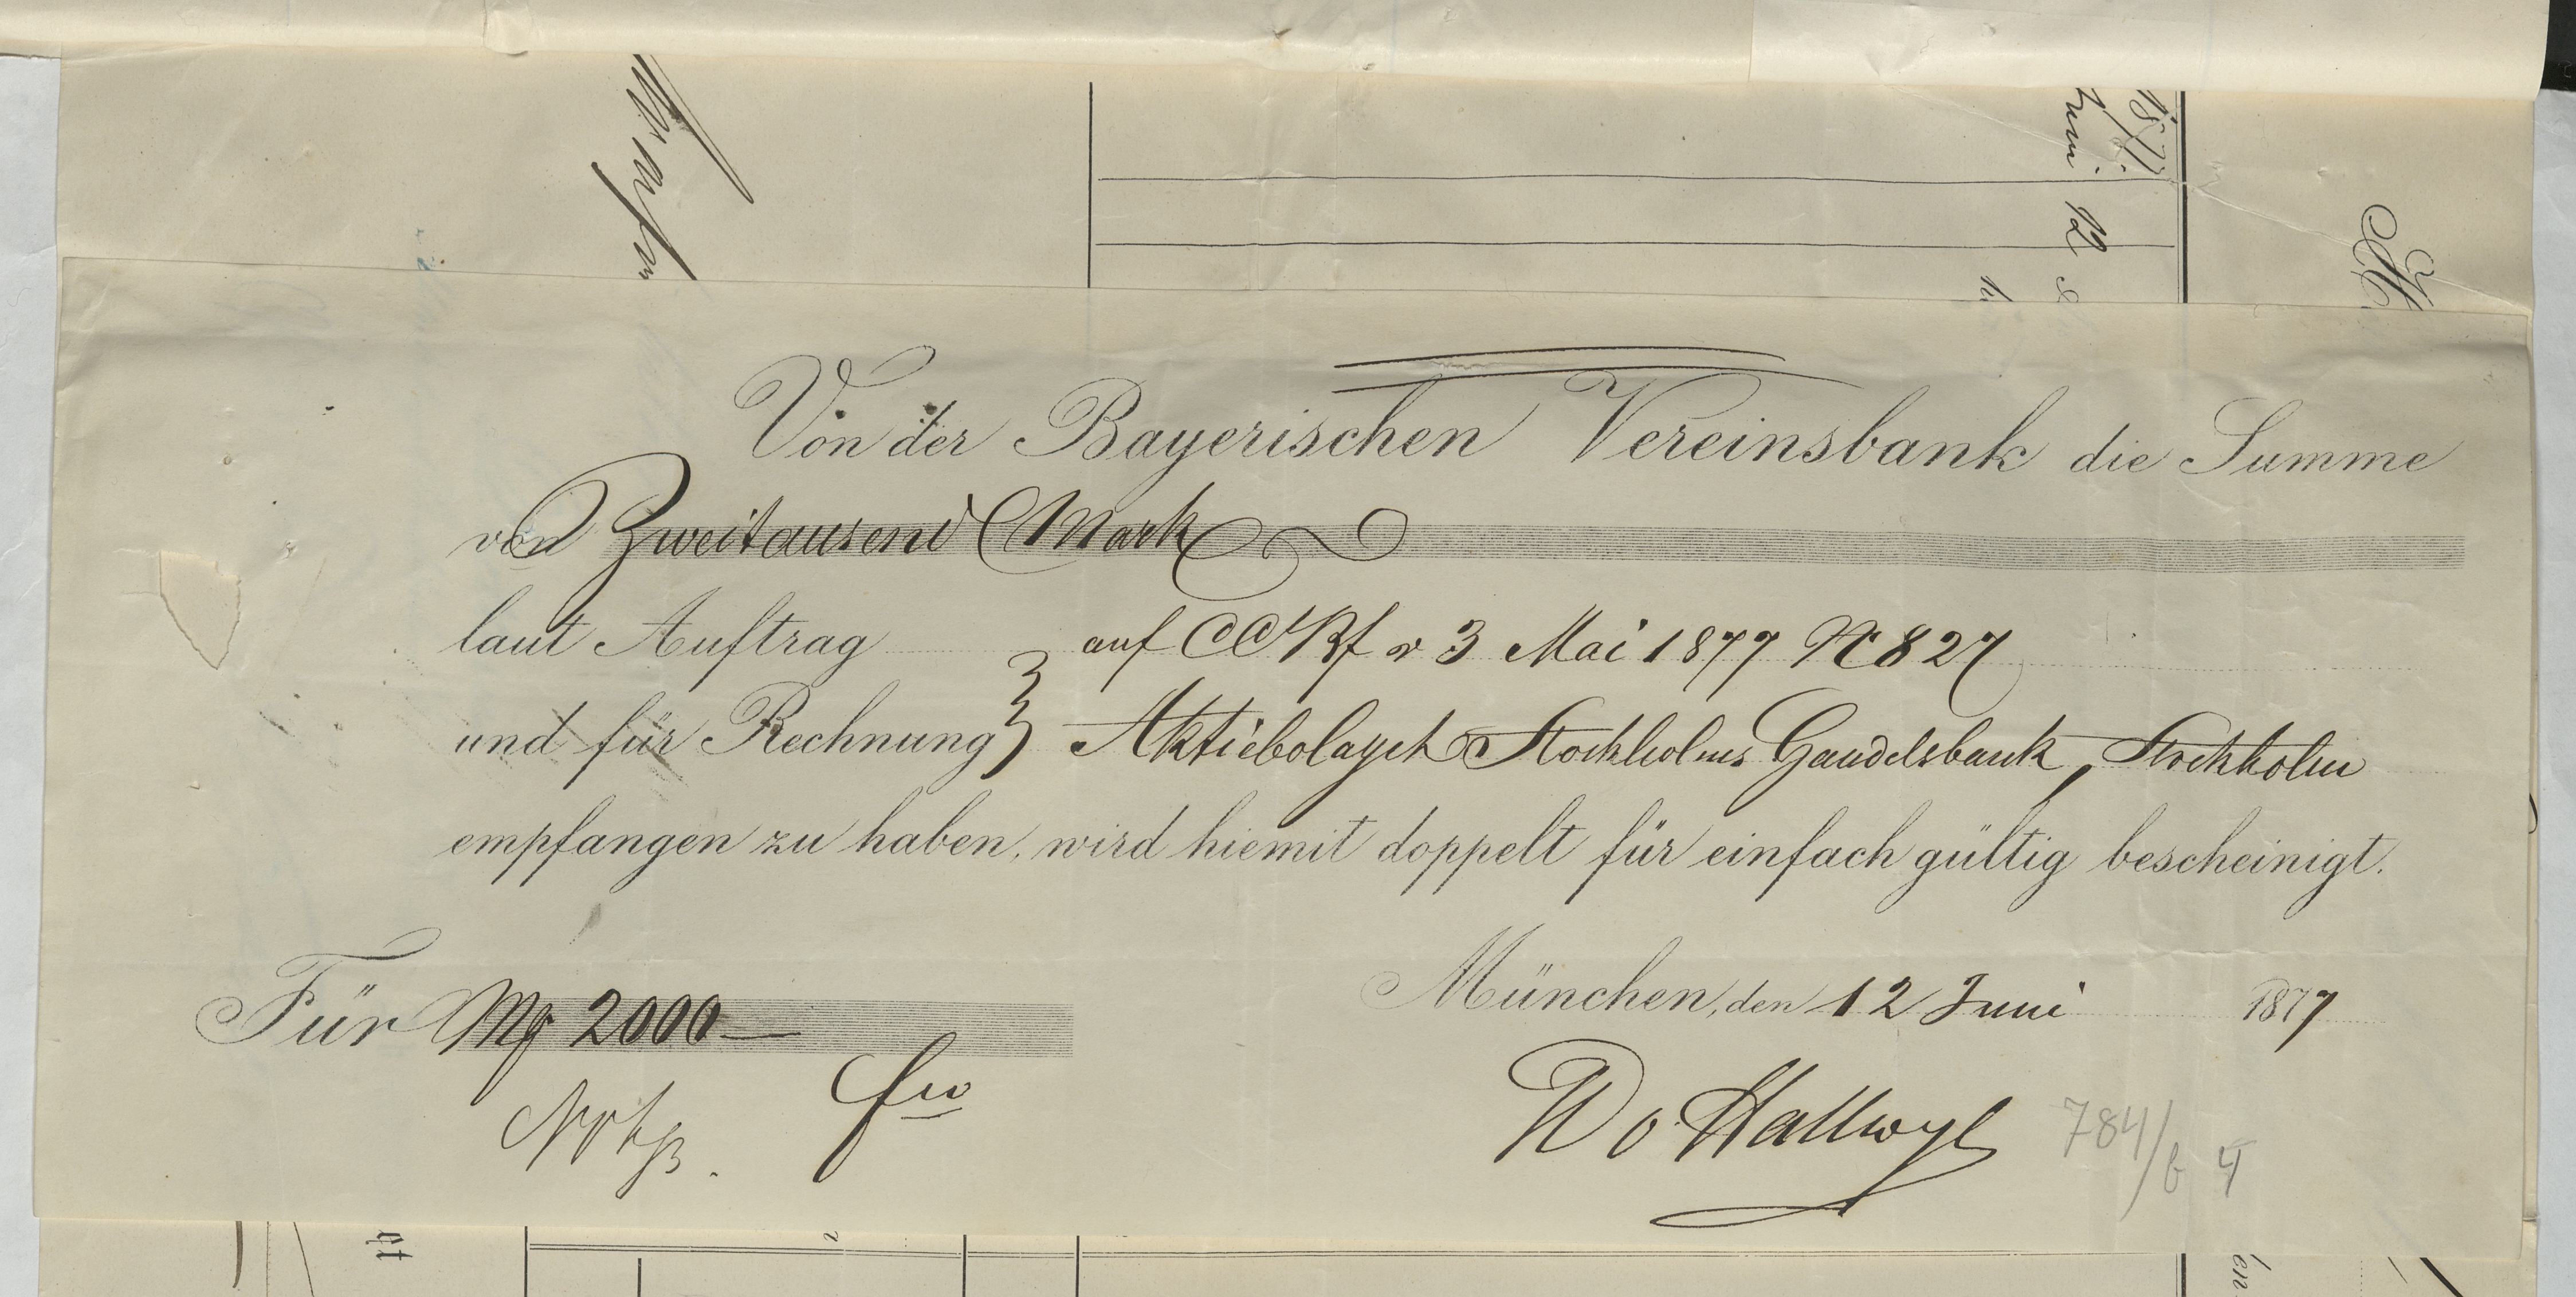 1877.
Juni 12
Von der Bayerischen Vereinsbank die Summe
von Zweitausend Mark
laut Auftrag auf CCBf v 3 Mai 1877 No 827
und für Rechnung Aktiebolaget Stockholms Handelsbank, Stockholm
empfangen zu haben, wird hiemit doppelt für einfach gültig bescheinigt.
Für M 2000
München, den 12 Juni 1877
W v Hallwyl
784/b 4